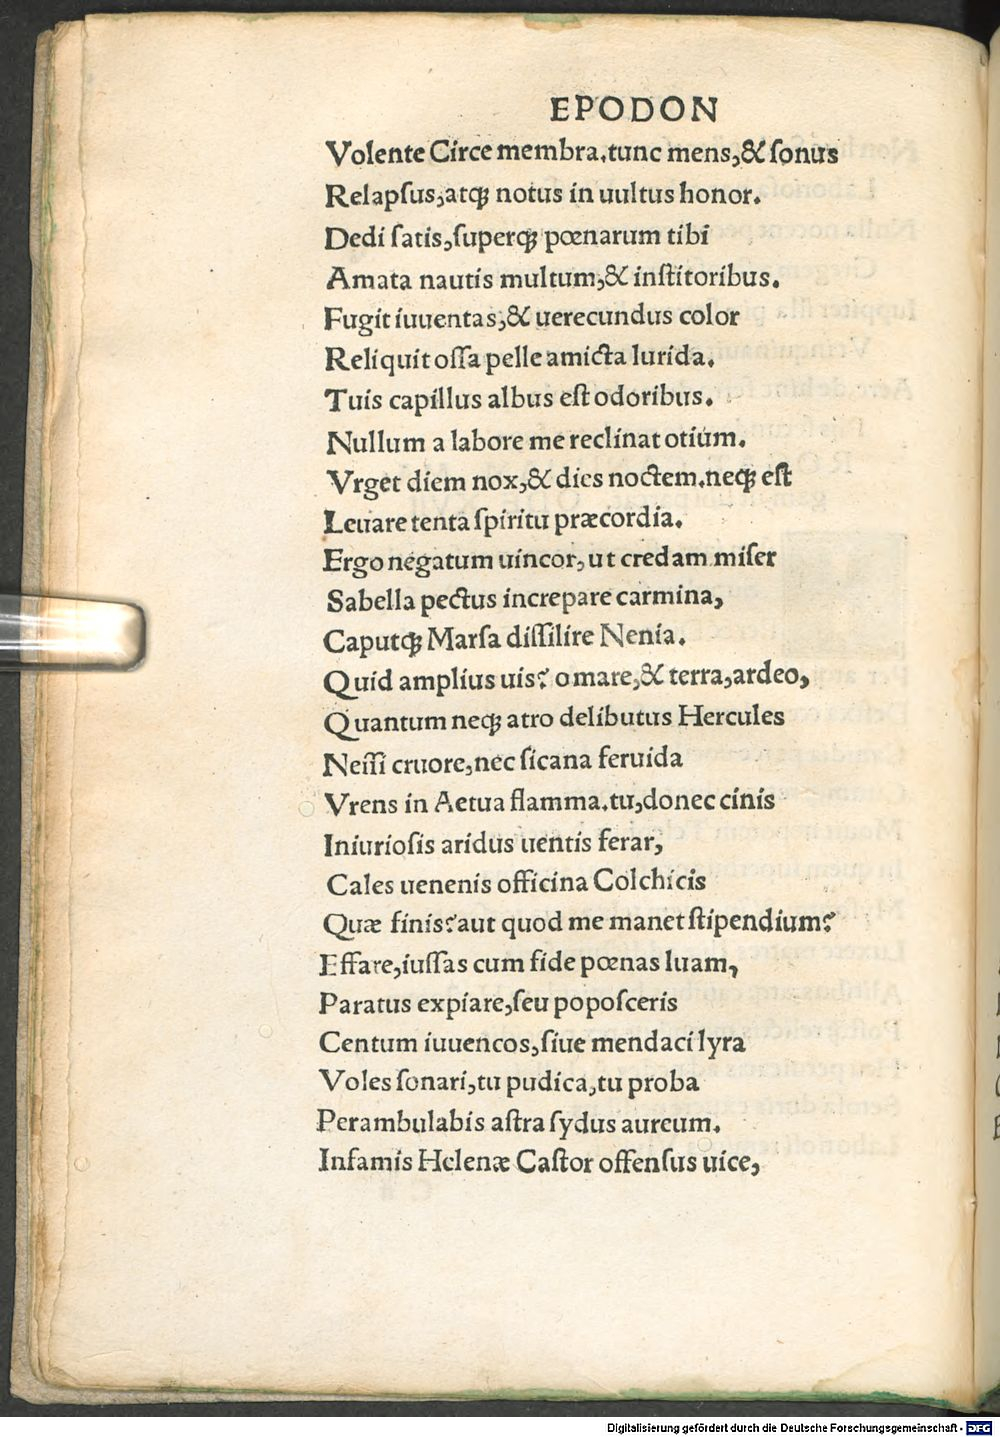 EPODON
Volente Circe membra.tunc mens,& ſonus
Relapſus,atq; notus in uultus honor.
Dedi ſatis,ſuperq; pœnarum tibi
Amata nautis multum,& inſtitoribus.
Fugit iuuentas,& uerecundus color
Reliquit oſſa pelle amicta lurida.
Tuis capillus albus eſt odoribus.
Nullum a labore me reclinat otium.
Vrget diem nox,& dies noctem.neq; eſt
Leuare tenta ſpiritu præcordia.
Ergo negatum uincor,ut credam miſer
Sabella pectus increpare carmina,
Caputq; Marſa diſſilire Nenia.
Quid amplius uis? o mare,& terra,ardeo,
Quantum neq; atro delibutus Hercules
Neſſi cruore,nec ſicana feruida
Vrens in Aetua flamma.tu,donec cinis
Iniurioſis aridus uentis ferar,
Cales uenenis officina Colchicis
Quæ finis?aut quod me manet ſtipendium?
Effare,iuſſas cum fide pœnas luam,
Paratus expiare,ſeu popoſceris
Centum iuuencos,ſiue mendaci lyra
Voles ſonari,tu pudica,tu proba
Perambulabis aſtra ſydus aureum.
Infamis Helenæ Caſtor offenſus uice,
Digitalisierung gefördert durch die Deutsche Forschungsgemeinschaft - DFG